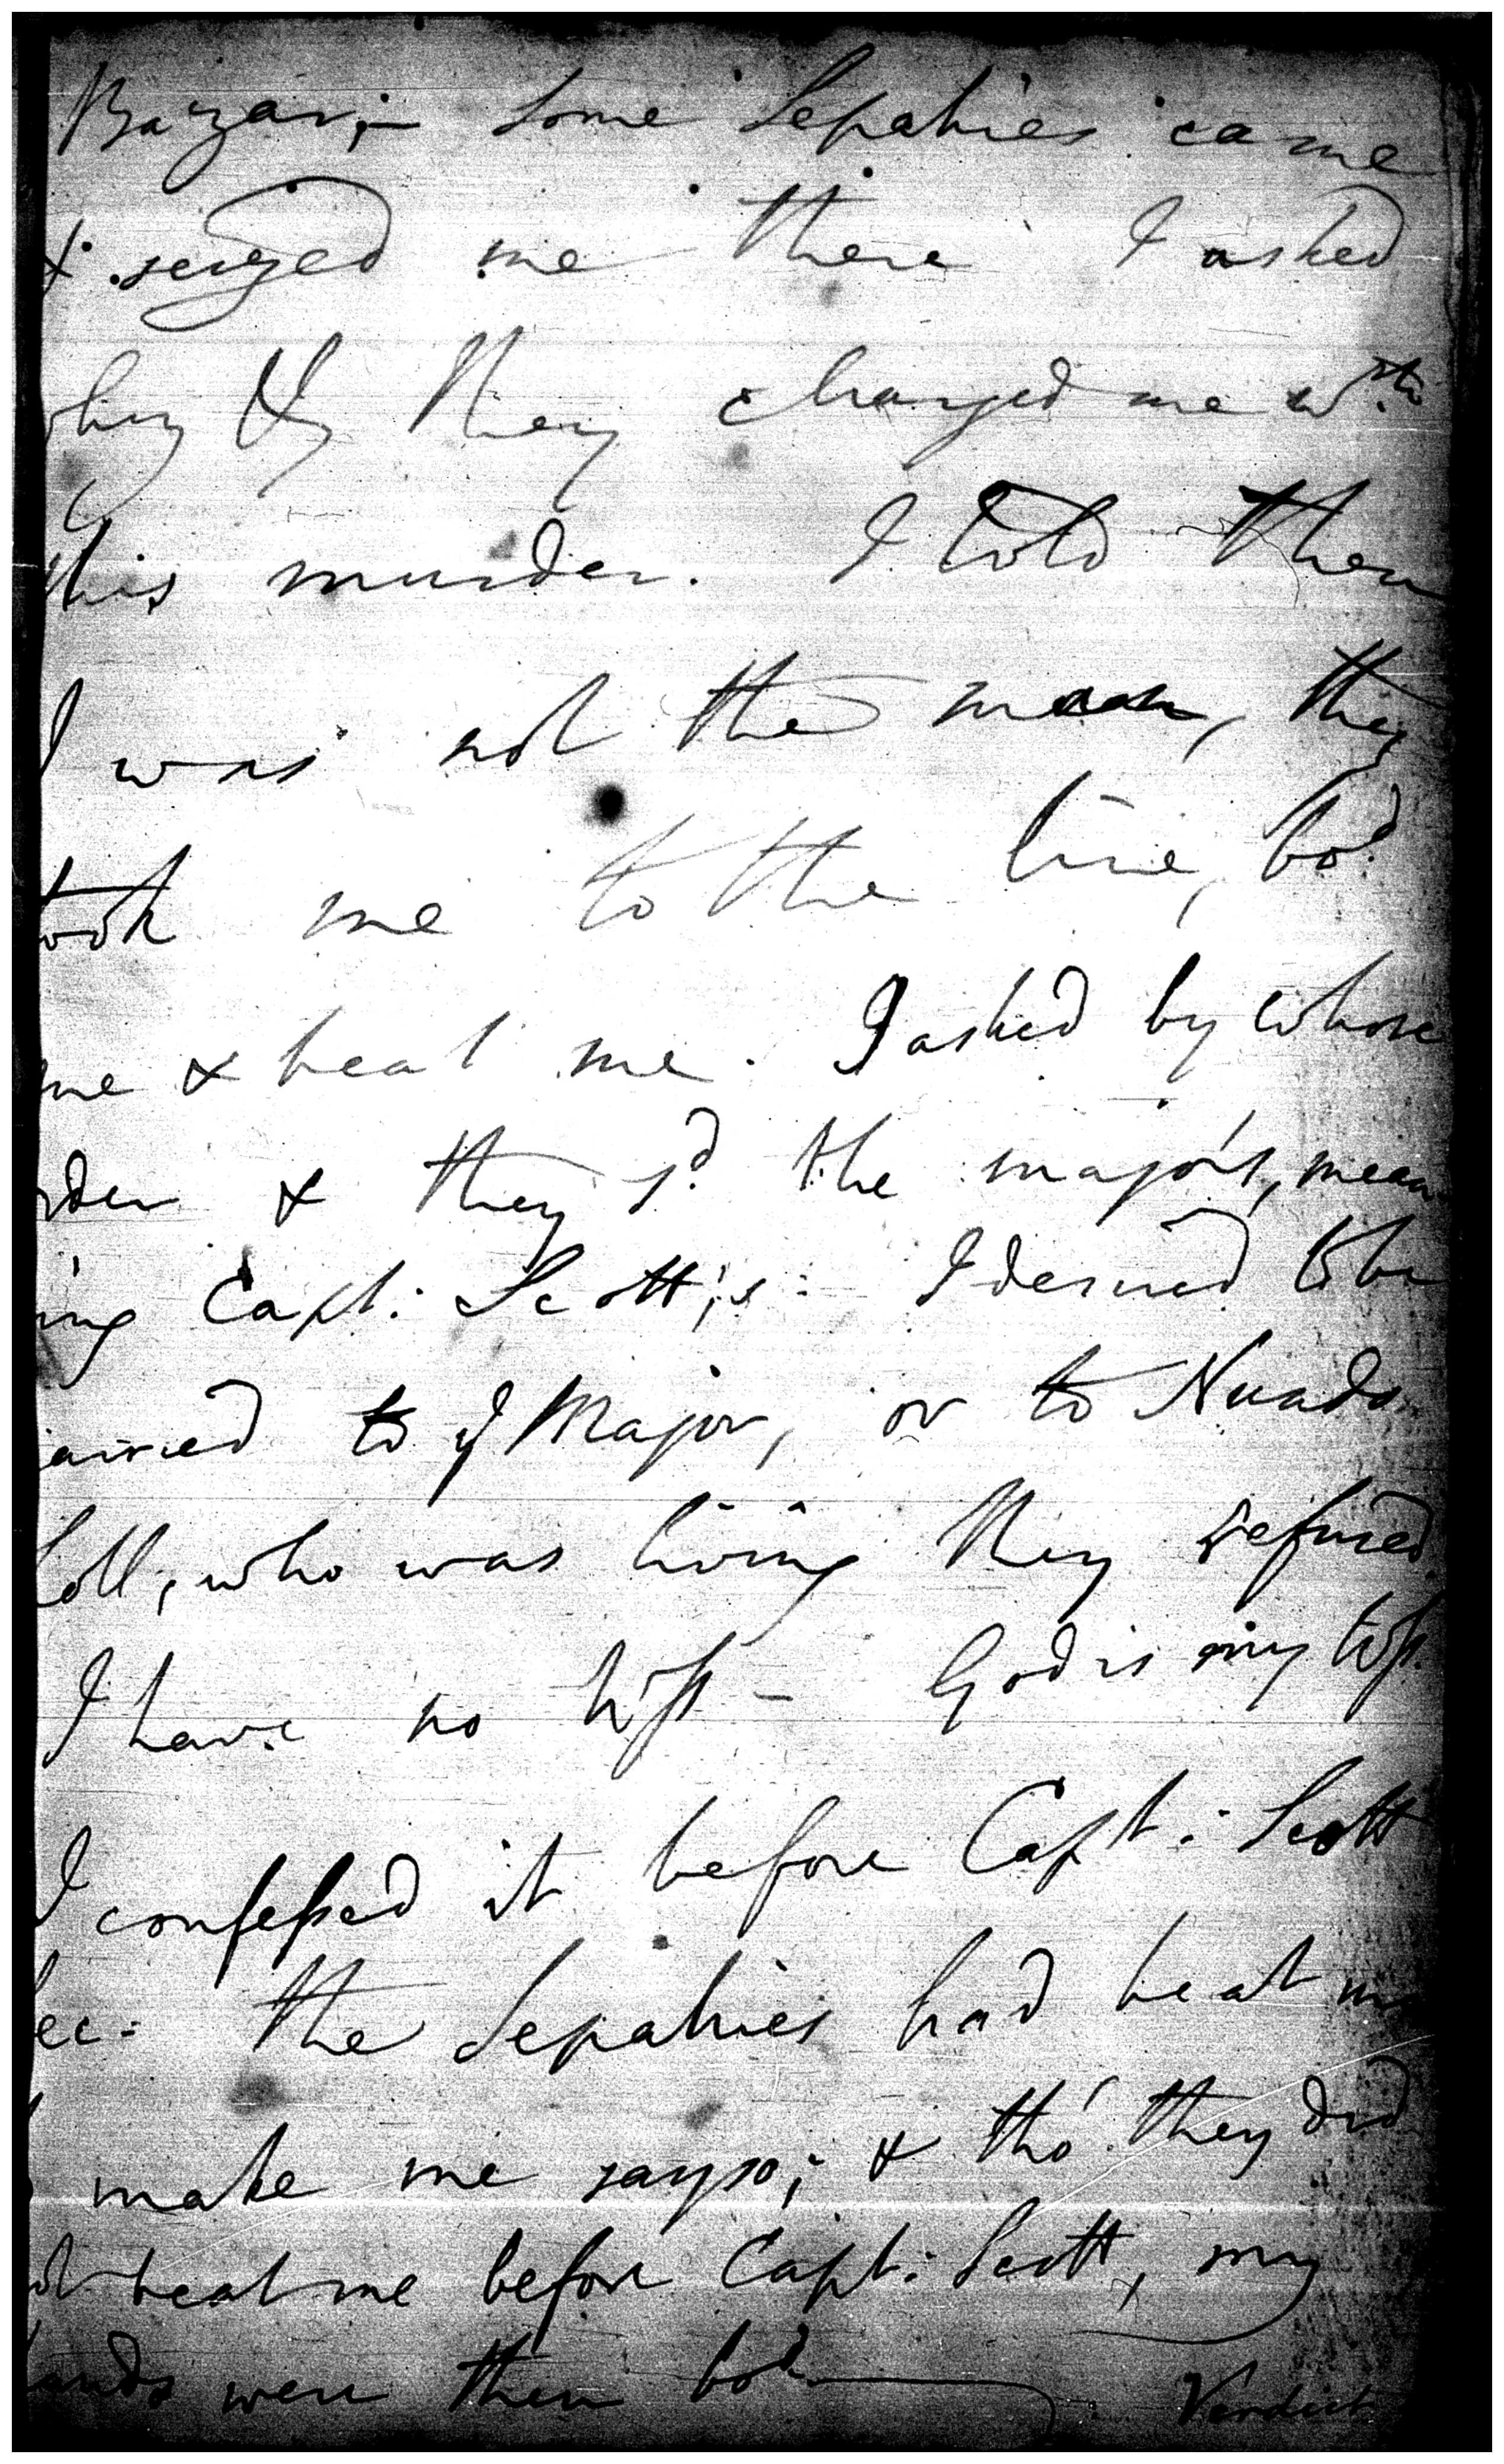 Bazar;- Some Sepahies came
& seized me there I asked
why & they charged me wth
this murder. I told them
I was not the man, they
took me to the line, bod
me & beat me. I asked by whose
order & they sd the major's, mean
ing Capt: Scott's: I desired to be
carried to ye Major, or to
Loll, who was living They refused
I have no Wss - God is my Wss.
I confessed it before Capt: Scott
bec: the Sepahies had beat me
to make me say so; & tho' they did
not beat me before Capt: Scott, my
hands were then bod
Verdict